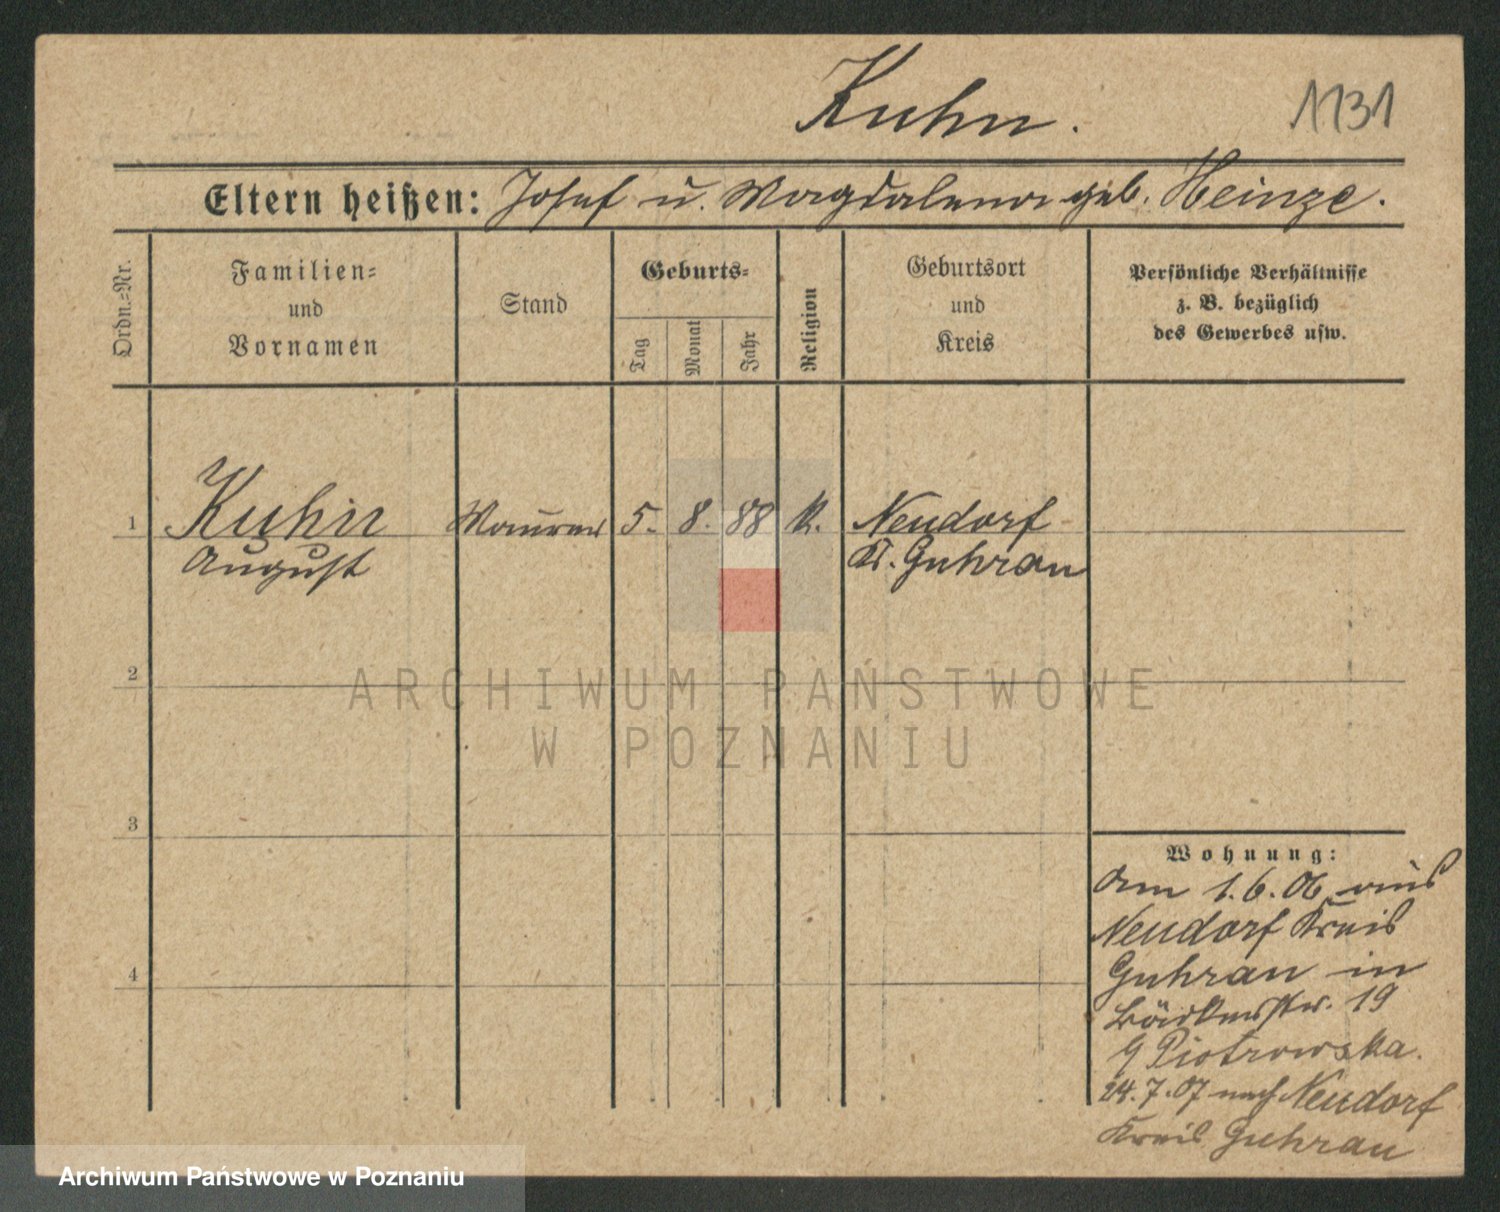 Kuhn.
1131
Eltern heißen: Josef u. Magdalena geb. Heinze.
Ordn.-Nr.
Familien-
und
Vornamen
Stand
Geburts-
Tag
Monat
Jahr
Religion
Geburtsort
und
Kreis
Persönliche Verhältnisse
z. B. bezüglich
des Gewerbes usw.
1 Kuhn Maurer 5. 8. 88 k. Neudorf
August Kr. Guhrau
2
ARCHIWUM PAŃSTWOWE
W POZNANIU
3
Wohnung:
Am 1.6.06 aus
Neudorf Kreis
Guhrau in
Bäckerstr. 19
4
Piotrowska.
24.7.07 nach Neudorf
Kreis Guhrau
Archiwum Państwowe w Poznaniu